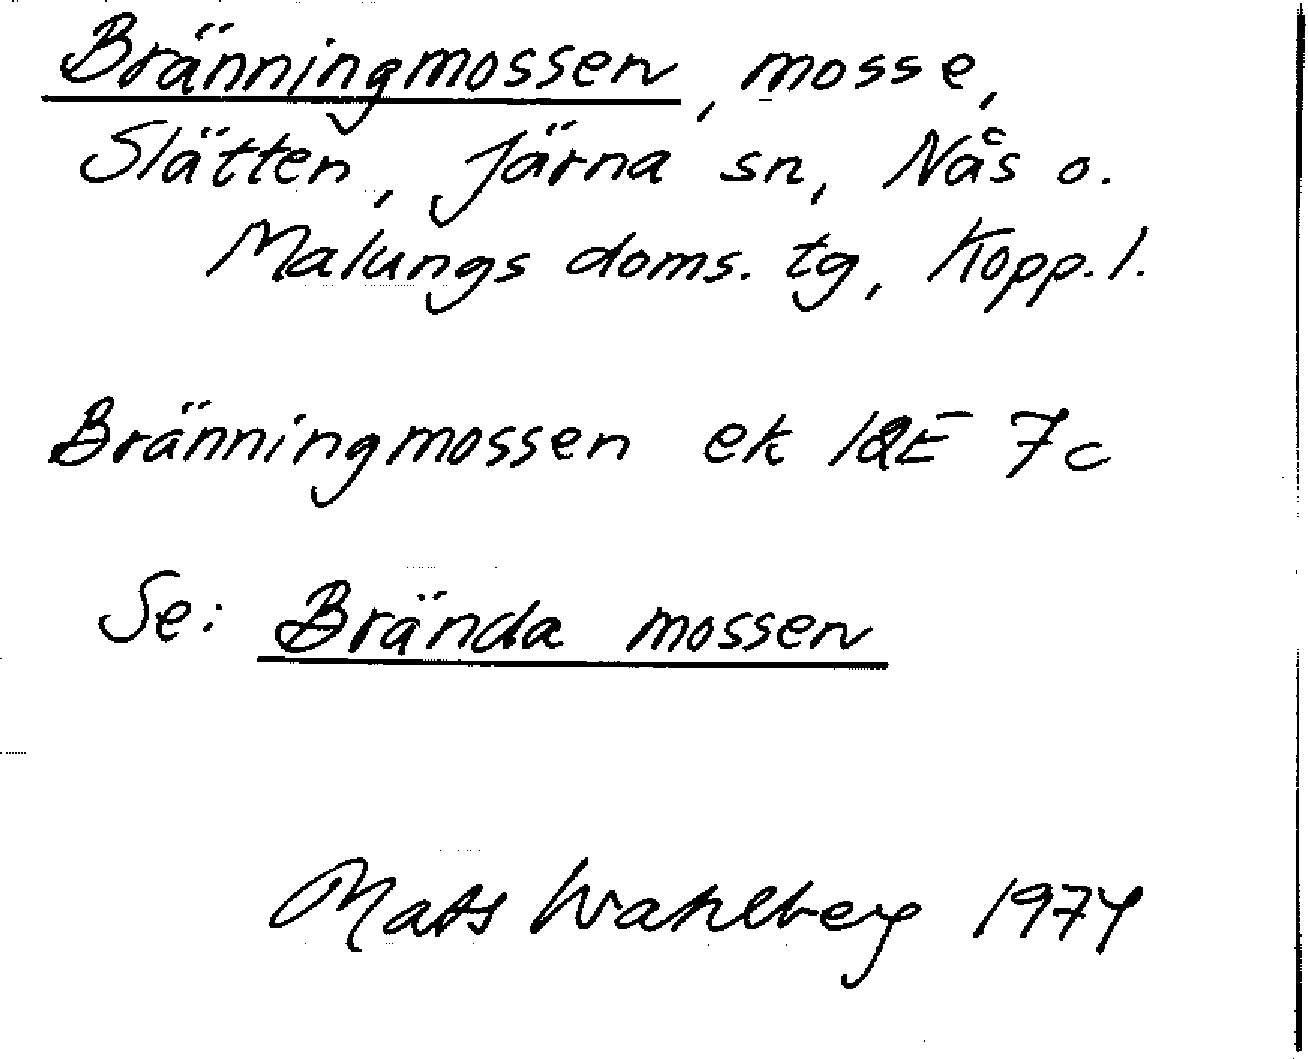 Bränningmossen, mosse,
Slätten, Järna sn, Nås o.
Malungs doms. tg, Kopp. l.
Bränningmossen ek 12E 7c
Se: Brända mossen
Mats Wahlberg 1974